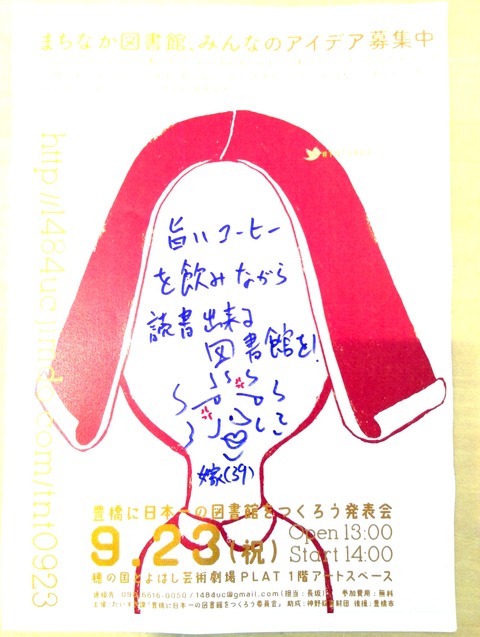 まちなか図書館、みんなのアイデア募集中
旨いコーヒー
を飲みながら
読書出来る
図書館を!
嫁(39)
豊橋に日本一の図書館をつくろう発表会
9.23(祝)
Open 13:00
Start 14:00
穂の国とよはし芸術劇場PLAT 1階アートスペース
1484uc@gmail.com(担当:長坂) 参加費用:無料
『豊橋に日本一の図書館をつくろう委員会』 助成: 後援:豊橋市